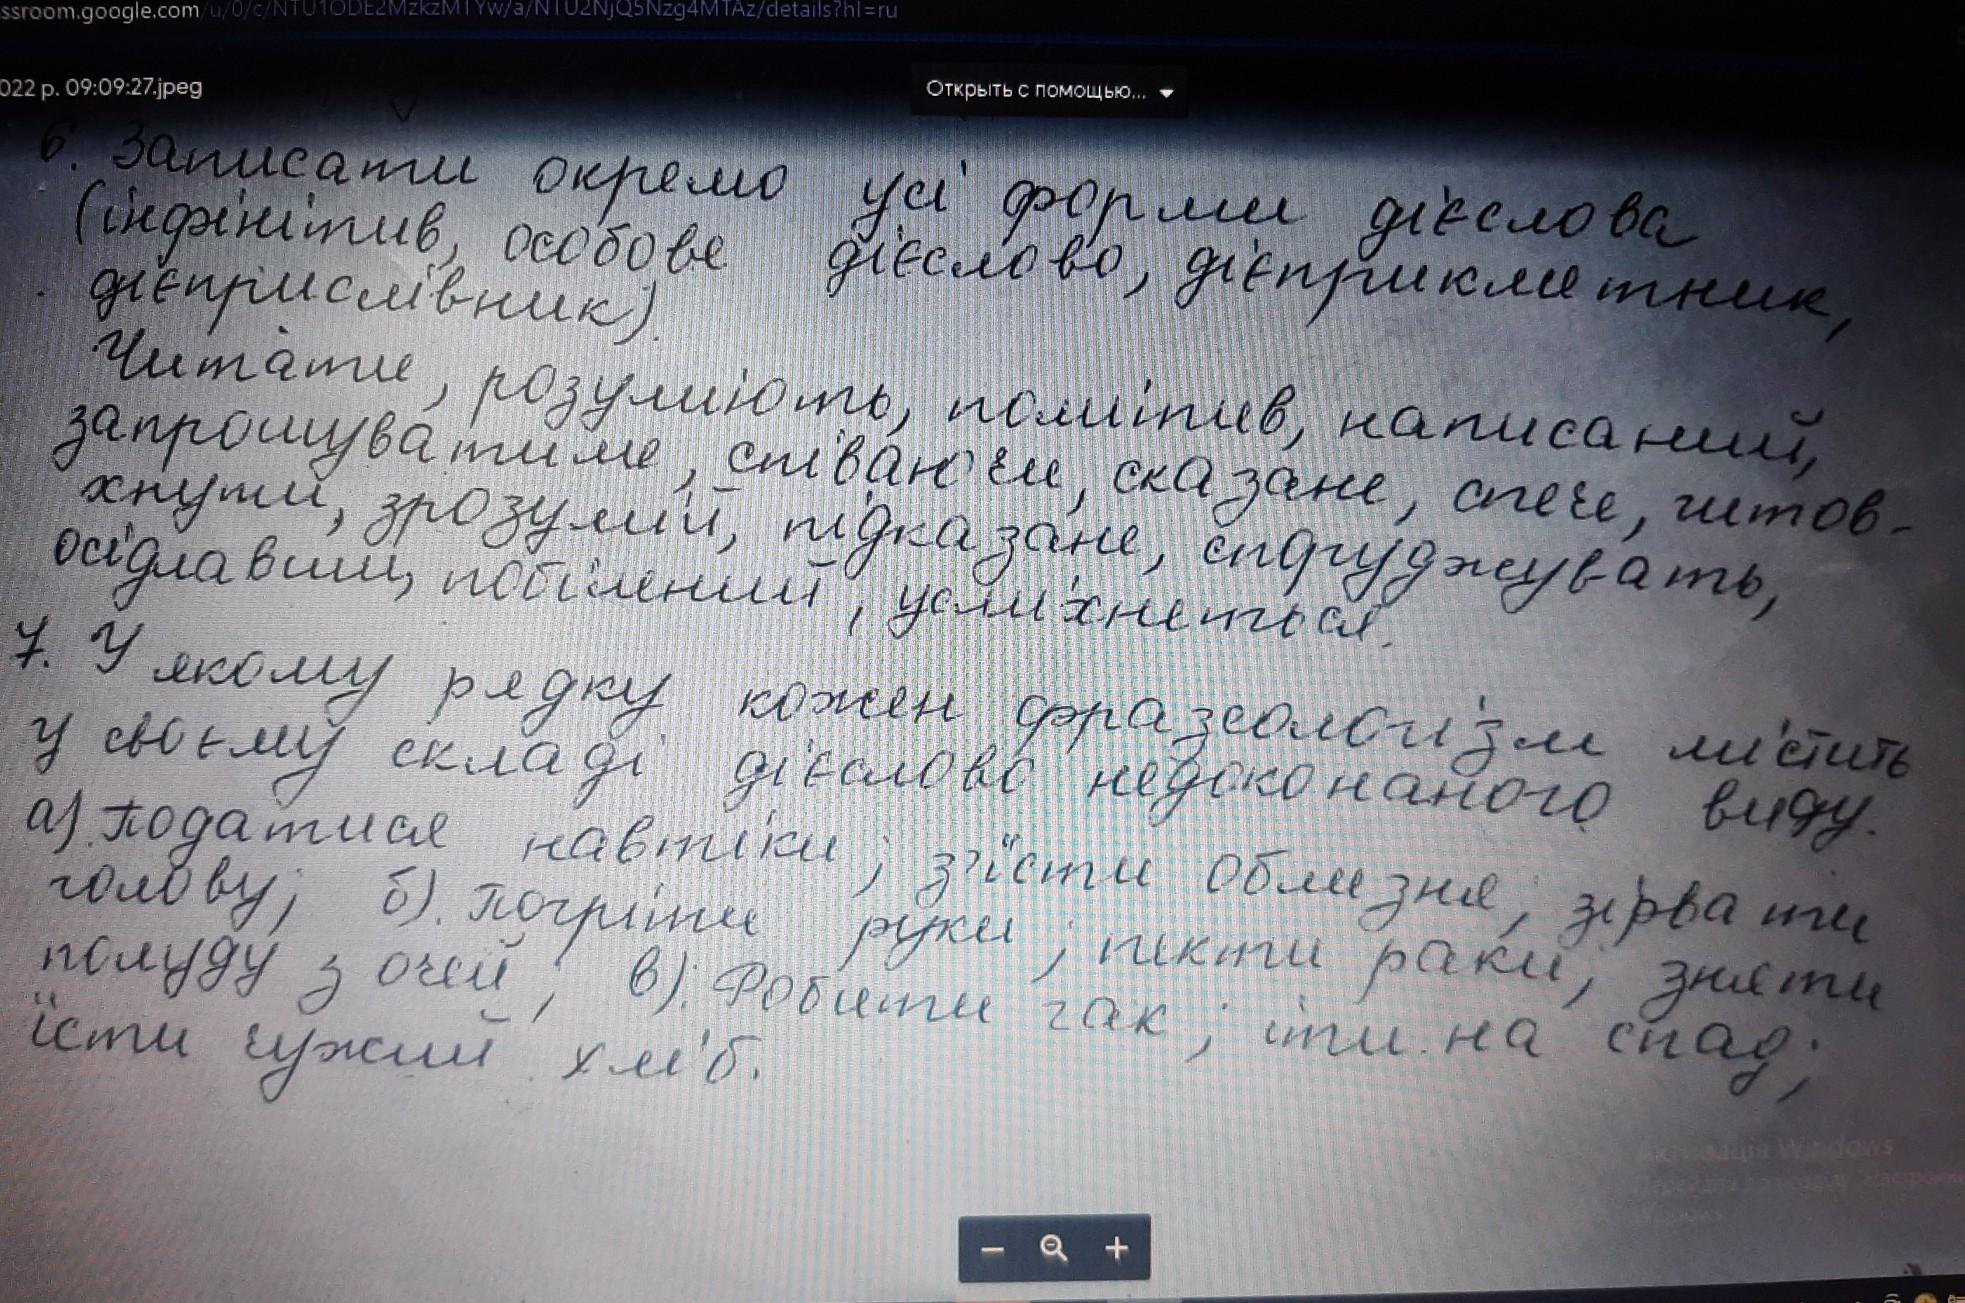 ssroom.google.com/u/0/c/NTU1ODE2MzkzMTYw/a/NTU2NjQ5Nzg4MTAz/details?hl=ru
022 р. 09:09:27.jpeg
Открыть с помощью...
6. Записати окремо усі форми дієслова
(інфінітив, особове дієслово, дієприкметник,
дієприслівник).
Читати, розуміють, помітив, написаний,
запрошуватиме, співаючи, сказане, спече, штов-
хнути, зрозумій, підказане, відчуджувать,
осідлавши, побілений, усміхнеться.
7. У якому рядку кожен фразеологізм містить
у своєму складі дієслово недоконаного виду.
а). Податися навтіки; з'їсти облизня; зірвати
голову; б). Погріти руки; пекти раки; зняти
полуду з очей; в). Робити гак; іти на спад;
їсти чужий хліб.
Активація Windows